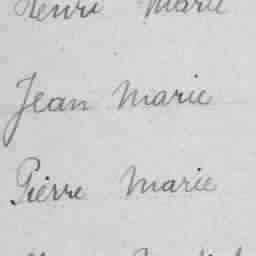 Henri Marie
Jean Marie
Pierre Marie